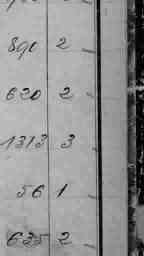 890 2
620 2
1313 3
56 1
635 2